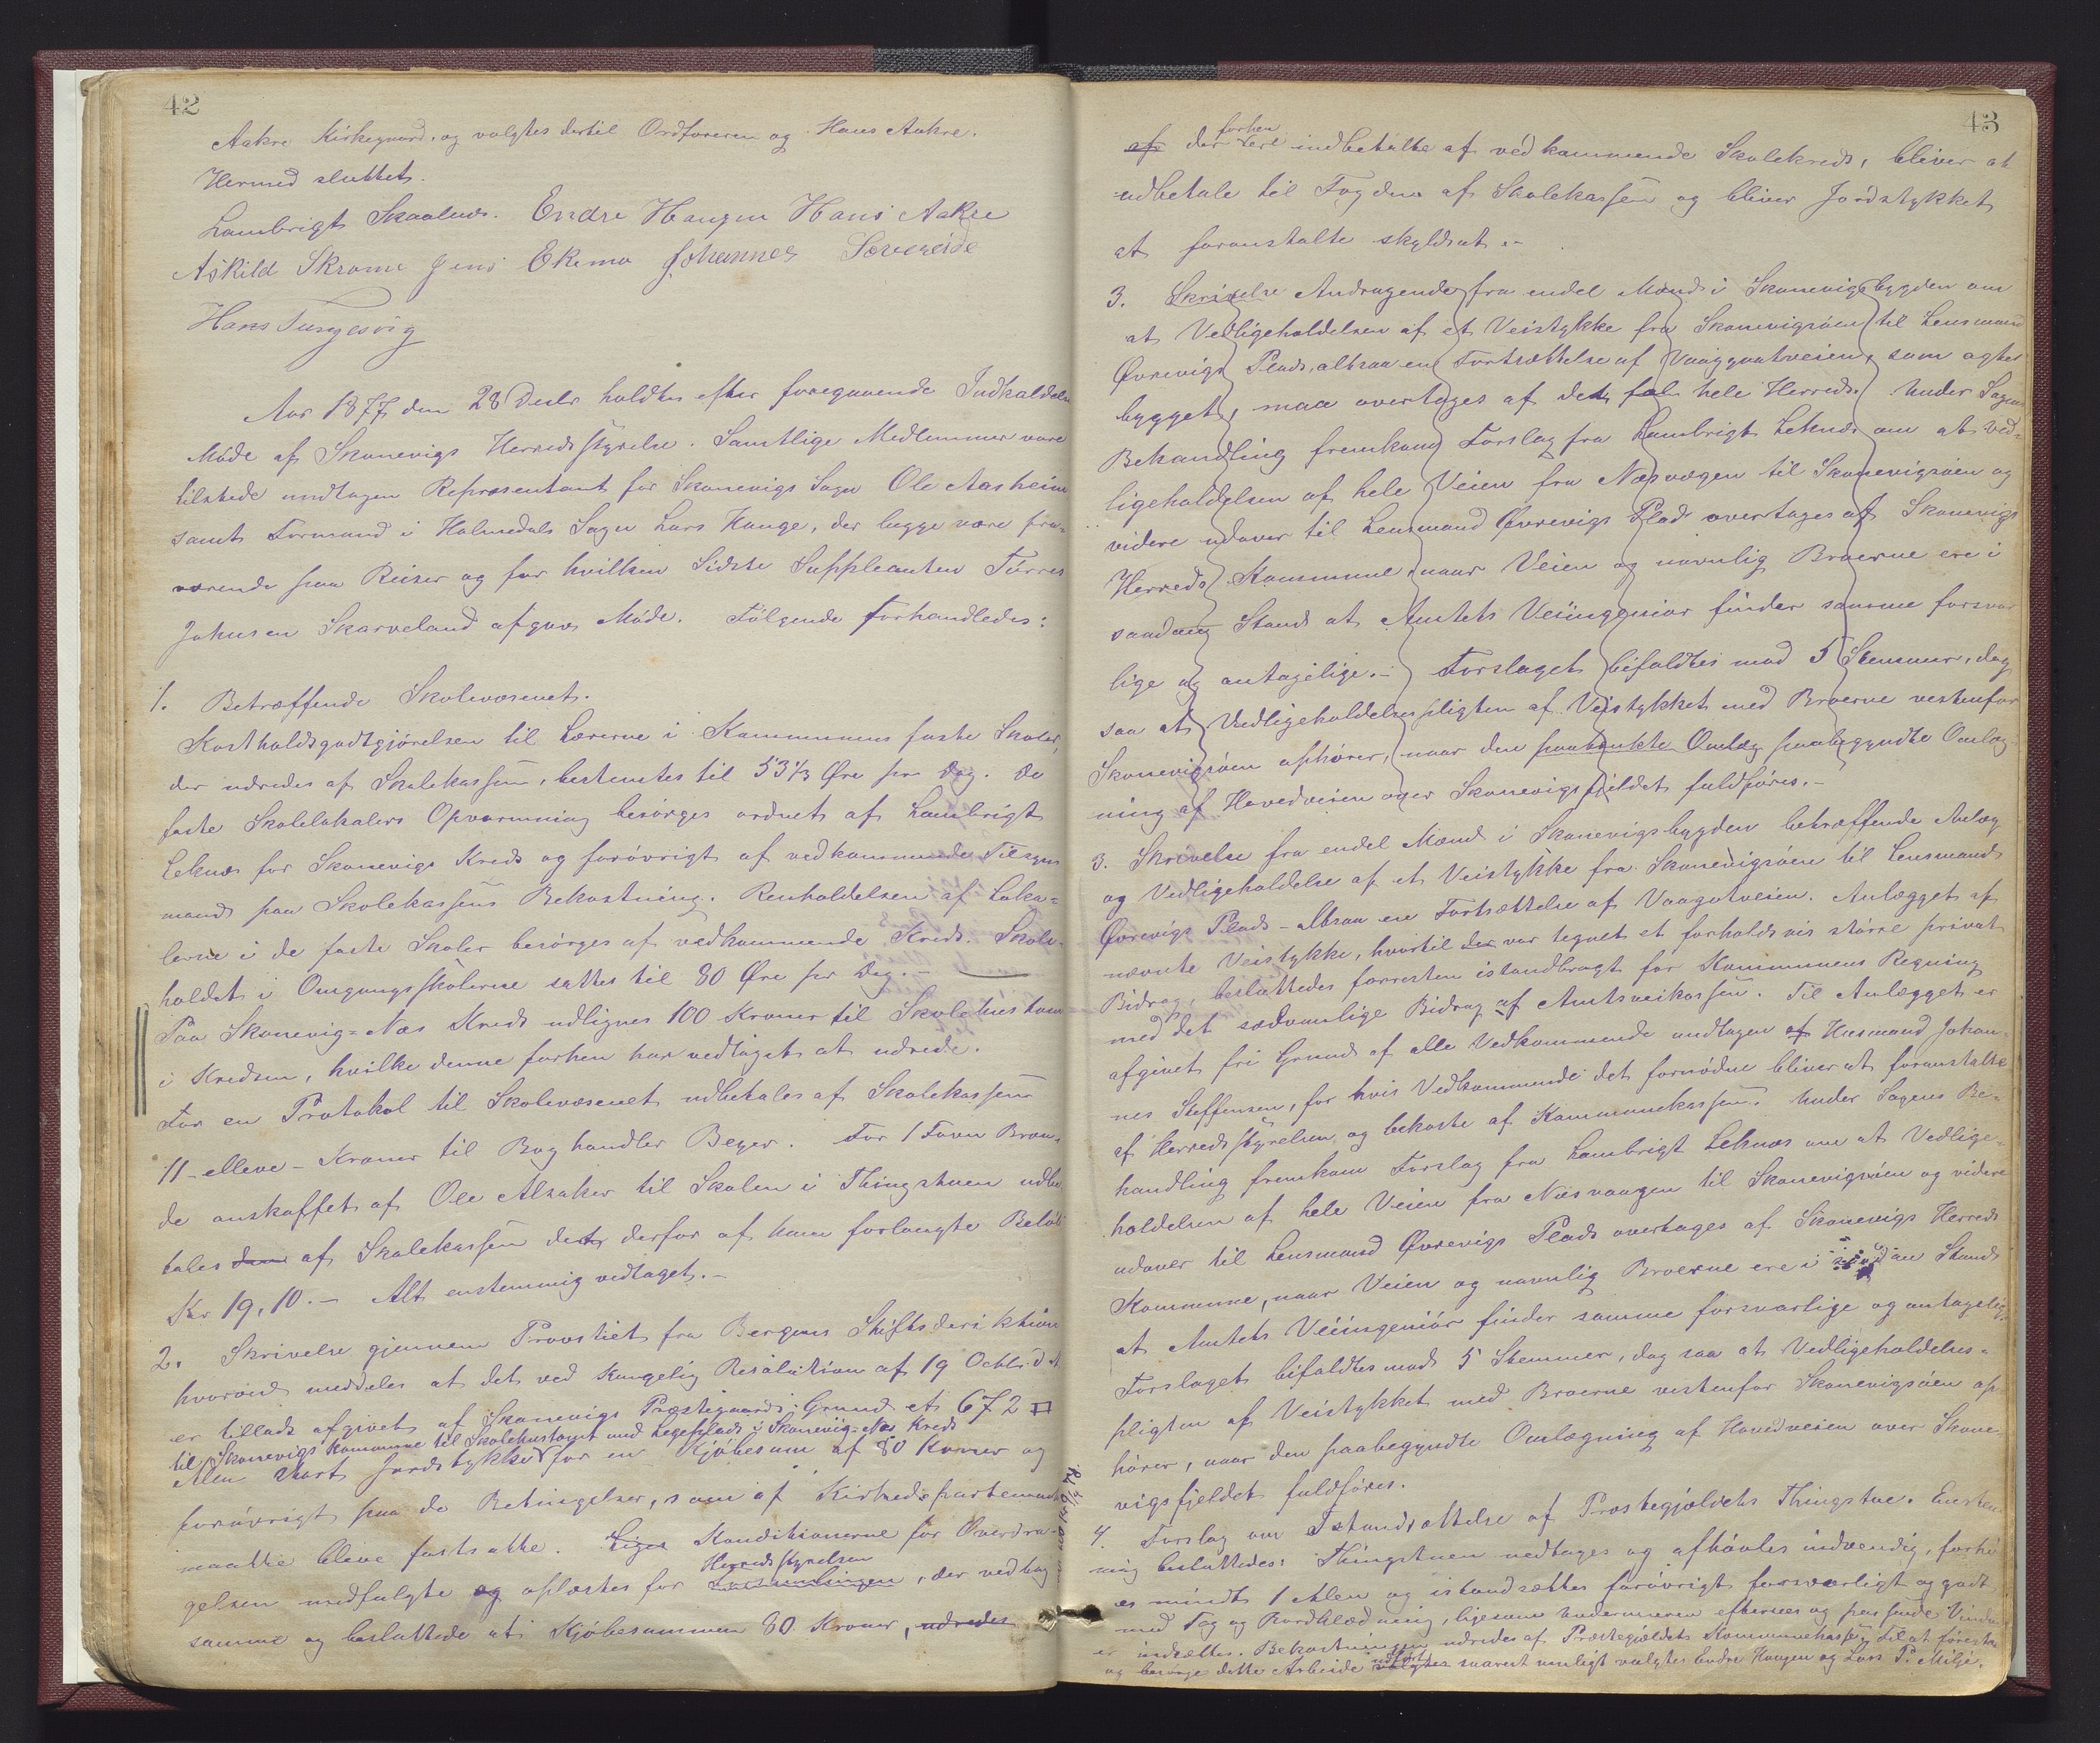 42
Aakre Kirkegaard, og valgtes dertil Ordføreren og Hans Aakre.
Hermed sluttet.
Lambrigt Skaalnes. Endre Haugen Hans Aakre
Askild Skrome Jens Ekemo Johannes Sævereide
Hans Tungesvig
Aar 1877 den 28 Decbr holdtes efter foregaaende Indkaldelse
Møde af Skonevigs Herredsstyrelse. Samtlige Medlemmer vare
tilstede undtagen Repræsentant for Skonevigs Sogn Ole Aasheim
samt Formand i Holmedals Sogn Lars Hauge, der begge vare fra-
værende paa Reiser og for hvilken Sidste Suppleanten Tørres
Johnsen Skarveland afgav Møde. Følgende forhandledes:
1. Betræffende Skolevæsenet.
Kostholdsgodtgjørelsen til Lærerne i Kommunens faste Skoler,
der udredes af Skolekassen, bestemtes til 53 1/3 Øre pr Dag. De
faste Skolelokalers Opvarmning besørges ordnet af Lambrigt
Leknes for Skonevigs Kreds og forøvrigt af vedkommende Tilsyns
mand paa Skolekassens Bekostning. Renholdelsen af Loka-
lerne i de faste Skoler besørges af vedkommende Kreds. Skole-
holdet i Omgangsskolerne sattes til 80 Øre pr Dag. -
Paa Skonevig-Næs Kreds udlignes 100 Kroner til Skolehustomt
i Kredsen, hvilke denne forhen har vedtaget at udrede.
For en Protokol til Skolevæsenet udbetales af Skolekassen
11 - elleve - Kroner til Boghandler Beyer. For 1 Favn Bræn-
de anskaffet af Ole Alsaker til Skolen i Thingstuen udbe-
tales den af Skolekassen det derfor af ham forlangte Beløb
Kr 19,10. - Alt enstemmig vedtaget. -
2. Skrivelse gjennem Provstiet fra Bergens Stiftsdirektion
hvorved meddeles at det ved Kongelig Resolution af 19 Octbr d. A.
er tilladt afgivet af Skonevigs Præstegaards Grund et 672 □
til Skonevigs Kommune til Skolehustomt med Legeplads i Skonevig-Næs Kreds
Alen stort Jordstykke for en Kjøbesum af 80 Kroner og
forøvrigt paa de Betingelser, som af Kirkedepartementet
maatte blive fastsatte. Liges Konditionerne for Overdra-
gelsen medfulgte og oplæstes for Herredsstyrelsen Forsamlingen, der vedtog
samme og besluttede at Kjøbesummen 80 Kroner, udredes
43
af der forhen vere indbetalte af vedkommende Skolekreds, bliver at
udbetale til Fogden af Skolekassen og bliver Jordstykket
at foranstalte skyldsat. -
3. Skrivelse Andragende fra endel Mænd i Skonevigsbygden om
at Vedligeholdelsen af et Veistykke fra Skonevigsøen til Lensmand
Øvrevigs Plads, altsaa en Fortsættelse af Vaagzvatveien, som agtes
bygget, maa overtages af det fal hele Herred. Under Sagens
Behandling fremkom Forslag fra Lambrigt Leknes om at Ved-
ligeholdelsen af hele Veien fra Næsvægen til Skonevigsøen og
videre udover til Lensmand Øvrevigs Plads overtages af Skonevigs
Herreds Kommune, naar Veien og navnlig Broerne ere i
saadan Stand at Amtets Veiingeniør finder samme forsvar
lige og antagelige. - Forslaget bifaldtes mod 5 Stemmer, dog
saa at Vedligeholdelsespligten af Veistykket med Broerne vestenfor
Skonevigsøen ophører, naar den paatænkte Omlæg paabegyndte Omlæg
ning af Hovedveien over Skonevigsfjeldet fuldføres. -
3. Skrivelse fra endel Mænd i Skonevigsbygden betræffende Anlæg
og Vedligeholdelse af et Veistykke fra Skonevigsøen til Lensmand
Øvrevigs Plads - altsaa en Fortsættelse af Vaagatveien. Anlægget af
nævnte Veistykke, hvortil der var tegnet et forholdsvis større privat
Bidrag, besluttedes forresten istandbragt for Kommunens Regning
med det sædvanlige Bidrag af Amtsveikassen. Til Anlægget er
afgivet fri Grund af alle Vedkommende undtagen af Husmand Johan-
nes Steffensen, for hvis Vedkommende det fornødne bliver at foranstalte
af Herredsstyrelsen og bekoste af Kommunekassen. Under Sagens Be-
handling fremkom Forslag fra Lambrigt Leknes om at Vedlige-
holdelsen af hele Veien fra Næsvaagen til Skonevigsøen og videre
udover til Lensmand Øvrevigs Plads overtages af Skonevigs Herreds
Kommune, naar Veien og navnlig Broerne ere i saadan Stand
at Amtets Veiingeniør finder samme forsvarlige og antagelige.
Forslaget bifaldtes mod 5 Stemmer, dog saa at Vedligeholdelses-
pligten af Veistykket med Broerne vestenfor Skonevigsøen op-
hører, naar den paabegyndte Omlægning af Hovedveien over Skone-
vigsfjeldet fuldføres.
4. Forslag om Istandsættelse af Præstegjældets Thingstue. Enstem-
mig besluttedes: Thingstuen nedtages og afhøvles indvendig, forhø-
es mindst 1 Alen og istandsættes forøvrigt forsvarligt og godt
med Tag og Bordklædning, ligesom Undermuren eftersees og passende Vindu-
er indsættes. Bekostningen udredes af Præstegjældets Kommunekasse. Til at forestaa
og besørge dette Arbeide udført valgtes snarest muligt valgtes Endre Haugen og Lars P. Milje.